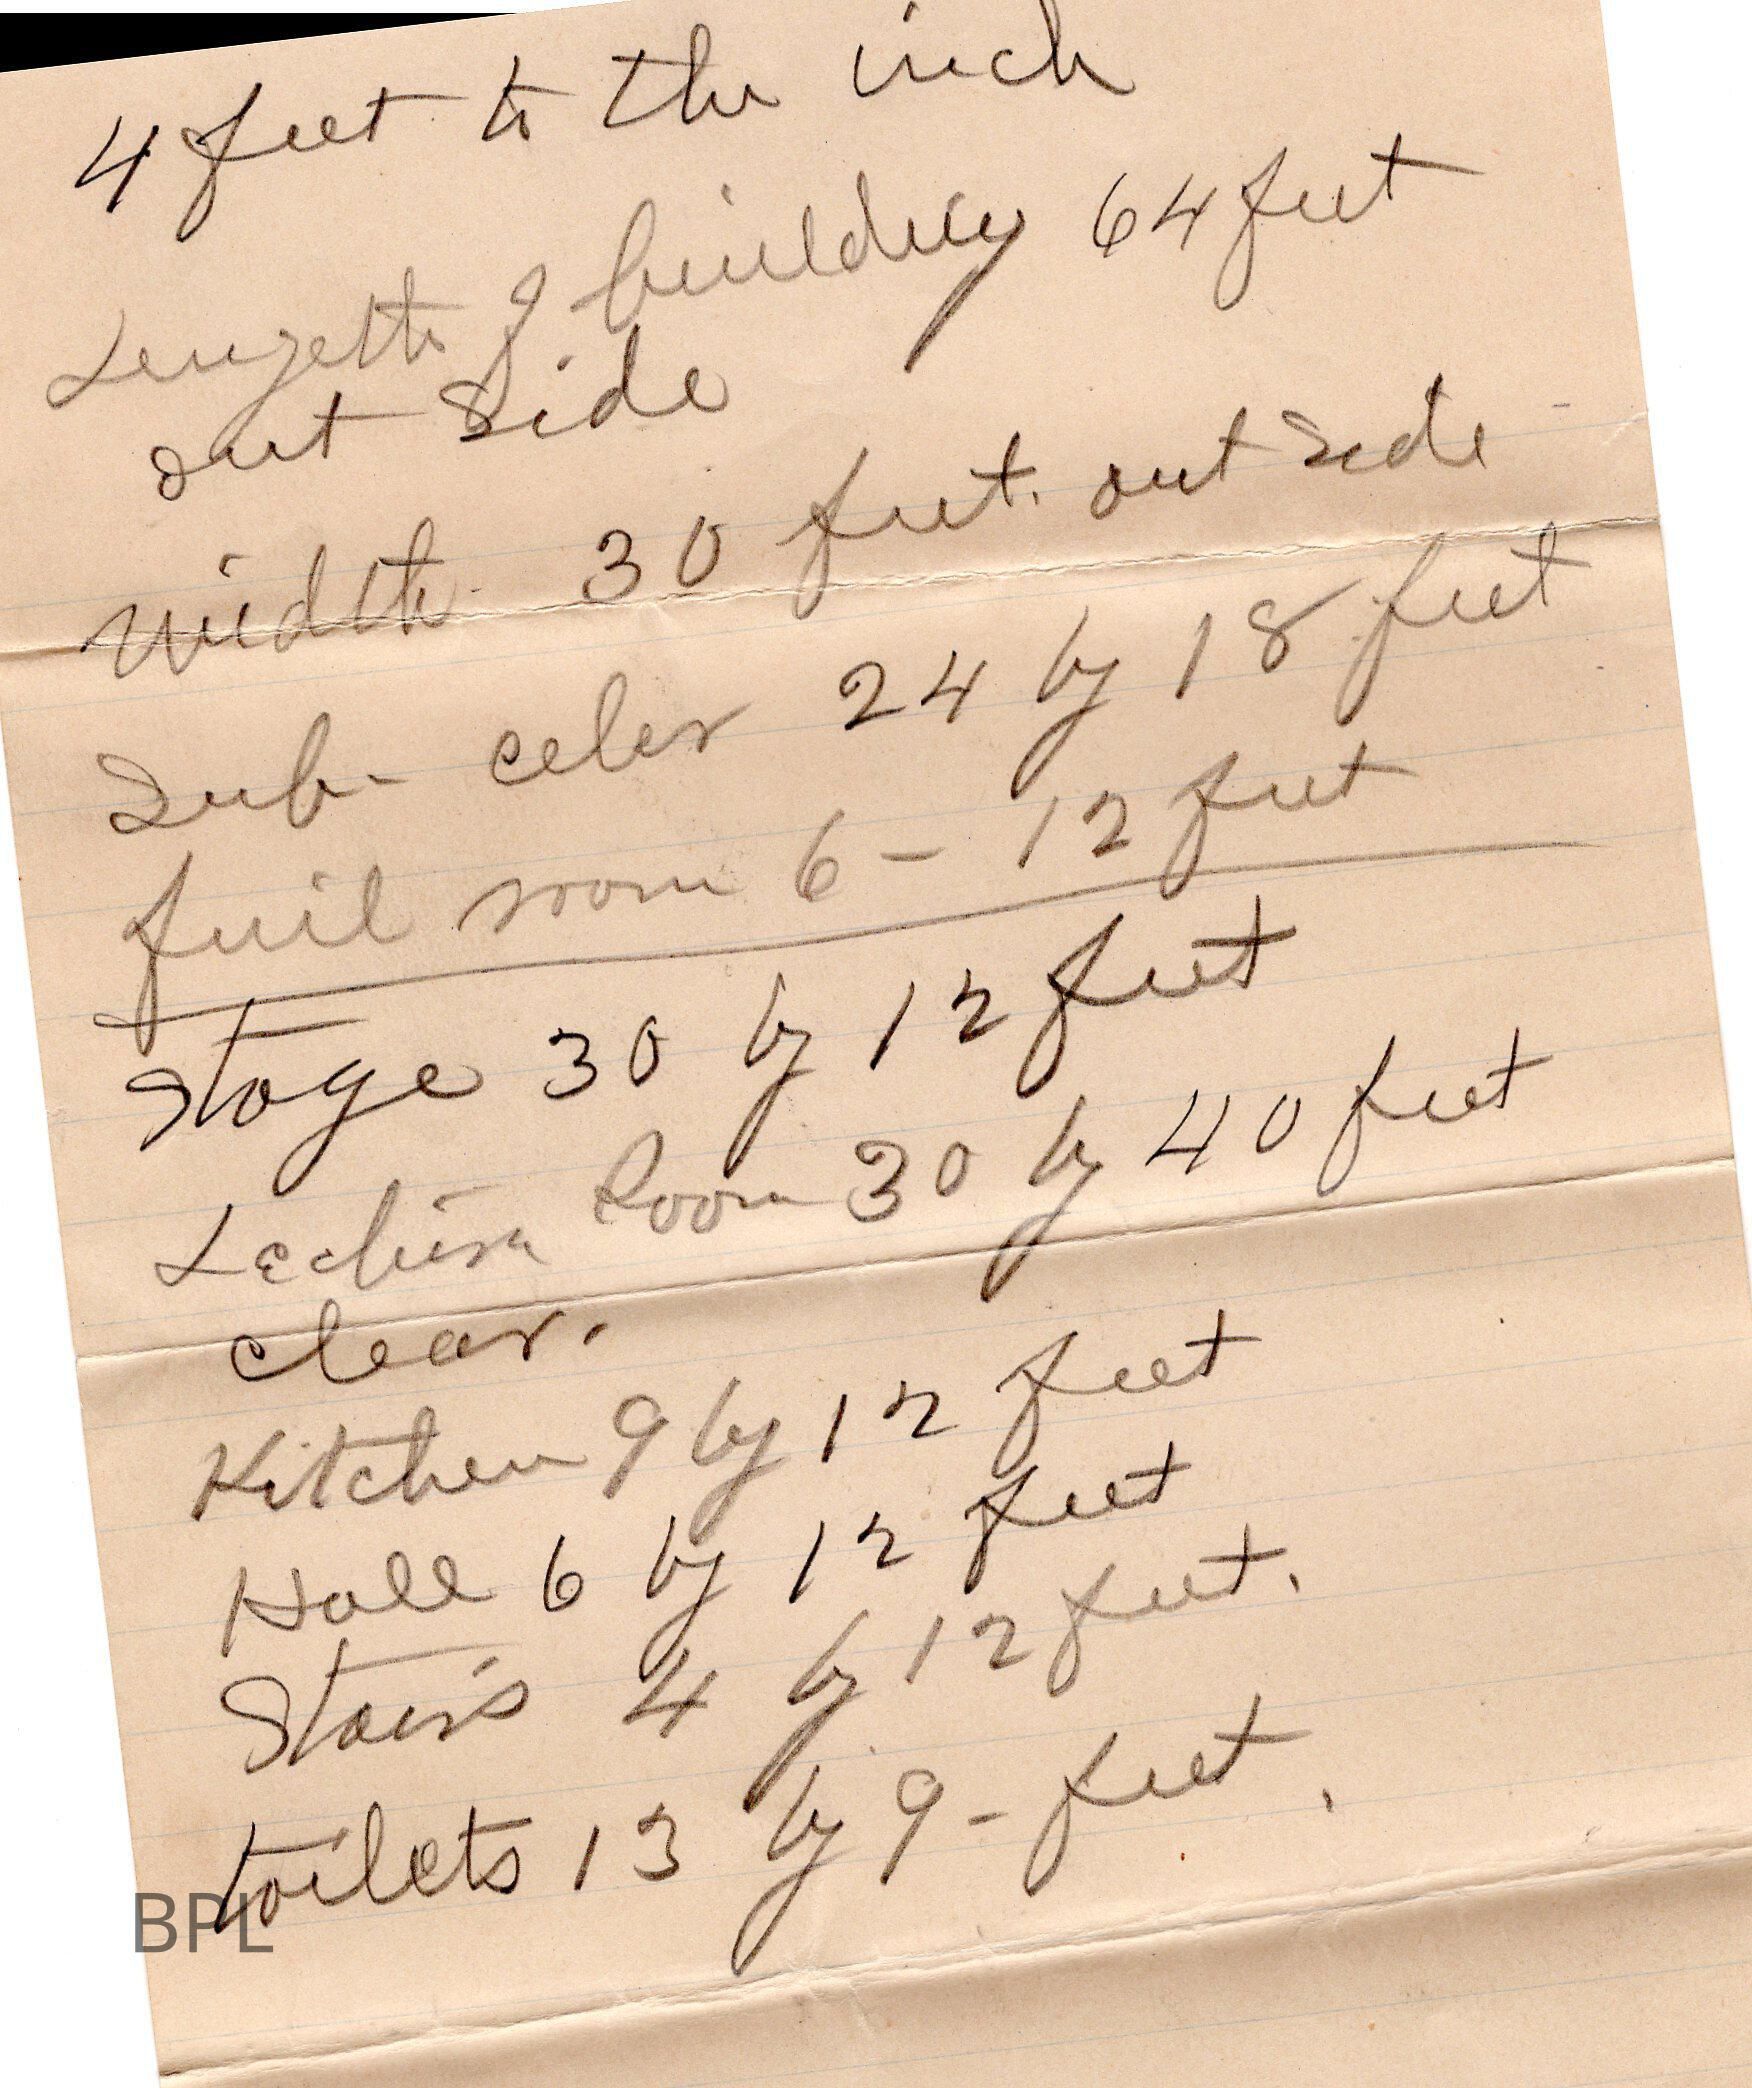 4 feet to the inch
Lengeth of building 64 feet
out side
Width 30 feet. out side
Sub- celer 24 by 18 feet
fuil room 6 - 12 feet
Stage 30 by 12 feet
Lecture Room 30 by 40 feet
clear.
Kitchen 9 by 12 feet
Hall 6 by 12 feet
Stairs 4 by 12 feet.
toilets 13 by 9 - feet.
BPL